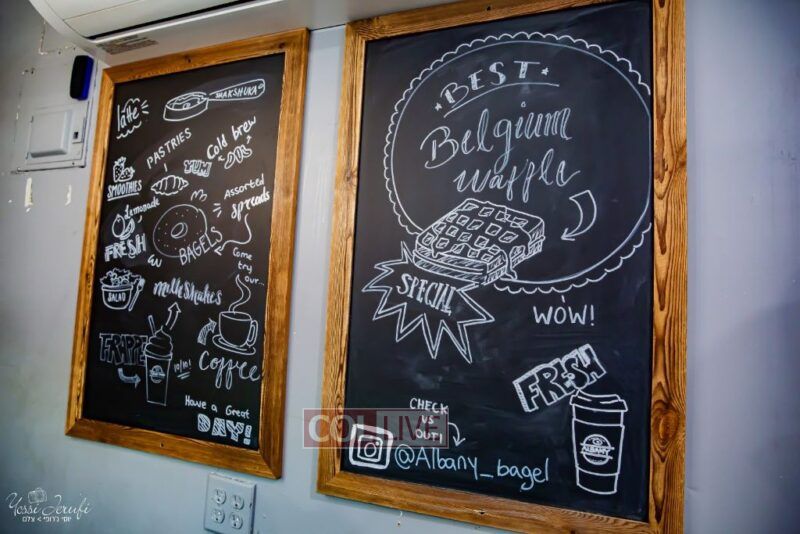 Latte
SHAKSHUKA
PASTRIES
Cold brew
YUM
SMOOTHIES
Assorted
spreads
Lemonade
FRESH
BAGELS
Come
try
our...
SALAD
Milkshakes
FRAPPE
10/10!
Coffee
Have a Great
DAY!
BEST
Belgium
waffle
SPECIAL
WOW!
FRESH
ALBANY
CHECK
US
OUT!
@Albany_bagel
COLLIVE
Yossi Jerufi